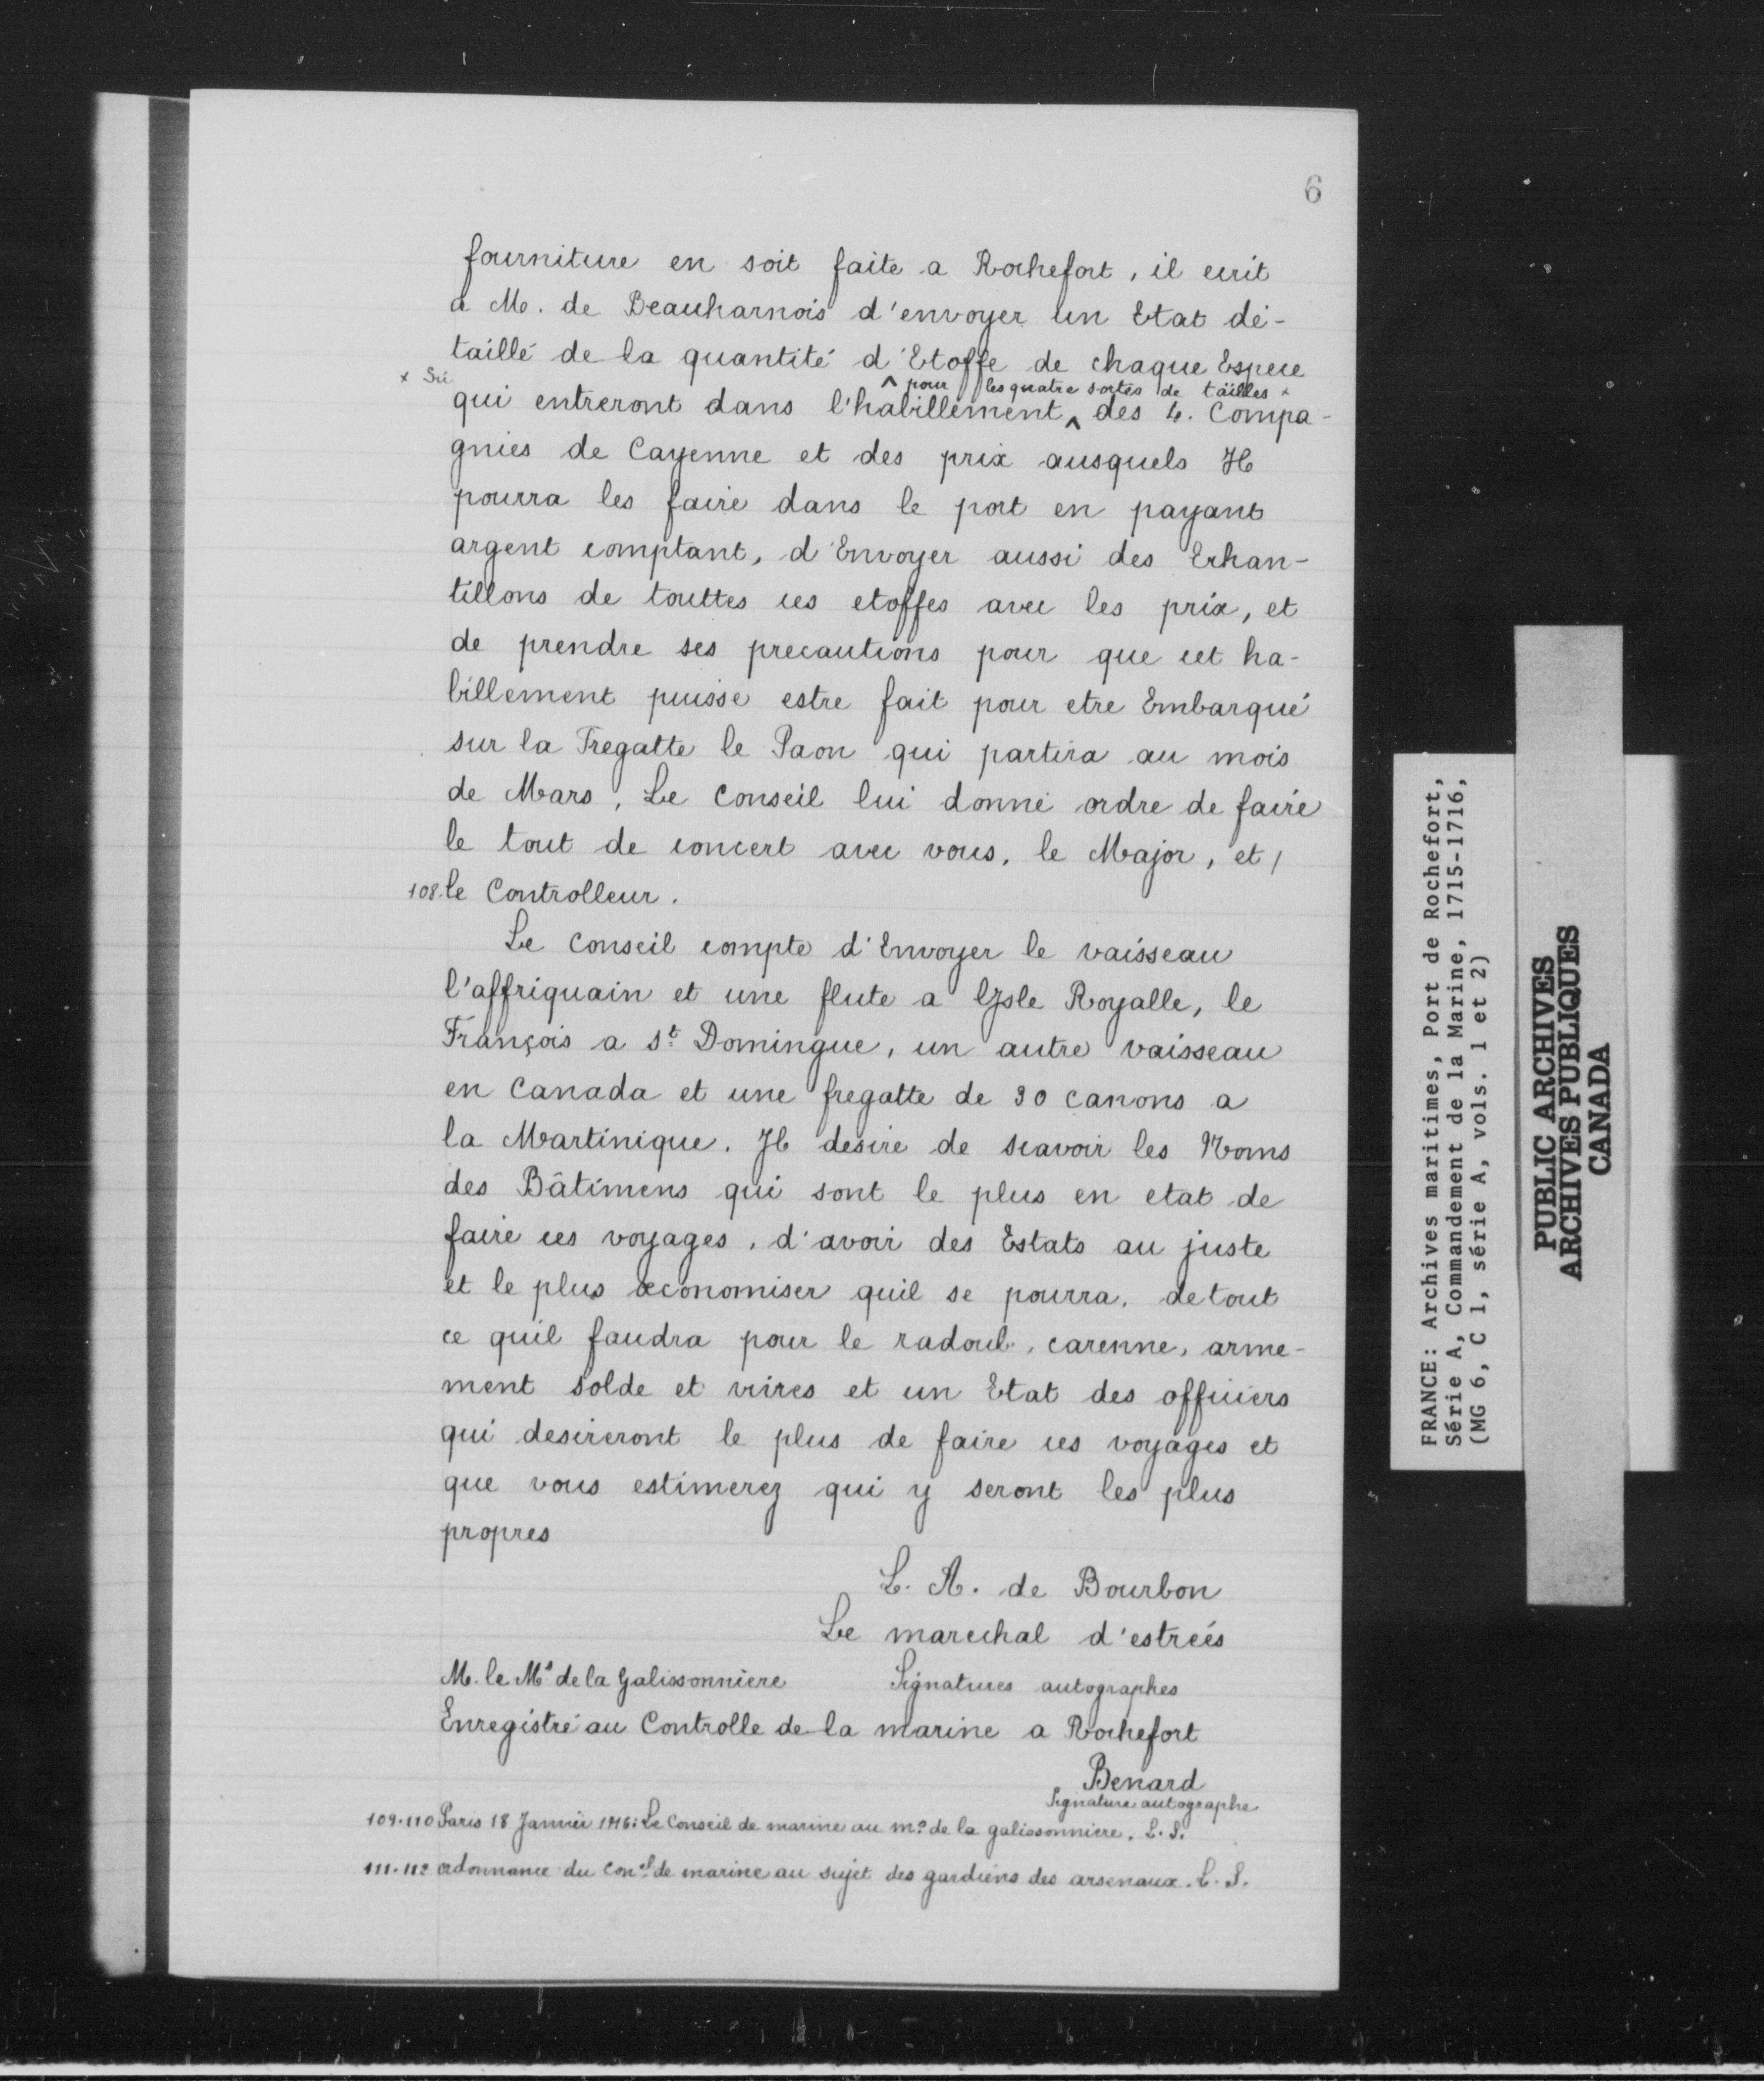 6
fourniture en soit faite a Rochefort, il ecrit
a M. de Beauharnois d'envoyer un Etat dé-
taillé de la quantité d'Etoffe de chaque Espece
x Sic
^ pour les quatre sortes de tailles x
qui entreront dans l'habillement ^ des 4. Compa-
gnies de Cayenne et des prix ausquels Il
pourra les faire dans le port en payant
argent comptant, d'Envoyer aussi des Echan-
tillons de touttes ces etoffes avec les prix, et
de prendre ses precautions pour que cet ha-
billement puisse estre fait pour etre Embarqué
sur la Fregatte le Paon qui partira au mois
de Mars, Le Conseil lui donne ordre de faire
le tout de concert avec vous, le Major, et /
108. le Controlleur.
Le Conseil compte d'Envoyer le vaisseau
l'affriquain et une flute a l'Isle Royalle, le
François a St. Domingue, un autre vaisseau
en Canada et une fregatte de 30 canons a
la Martinique. Il desire de scavoir les Noms
des Bâtimens qui sont le plus en etat de
faire ces voyages, d'avoir des Estats au juste
et le plus œconomiser quil se pourra, de tout
ce quil faudra pour le radoub, carenne, arme-
ment solde et vivres et un Etat des officiers
qui desireront le plus de faire ces voyages et
que vous estimerez qui y seront les plus
propres
L. A. de Bourbon
Le marechal d'estrées
M. le Mis de la Galissonniere Signatures autographes
Enregistré au Controlle de la marine a Rochefort
Benard
Signature autographe
109.110 Paris 18 Janvier 1716: Le Conseil de marine au mis de la galissonniere. L. S.
111.112 ordonnance du conel de marine au sujet des gardiens des arsenaux. L. S.
FRANCE: Archives maritimes, Port de Rochefort,
Série A, Commandement de la Marine, 1715-1716,
(MG 6, C 1, série A, vols. 1 et 2)
PUBLIC ARCHIVES
ARCHIVES PUBLIQUES
CANADA